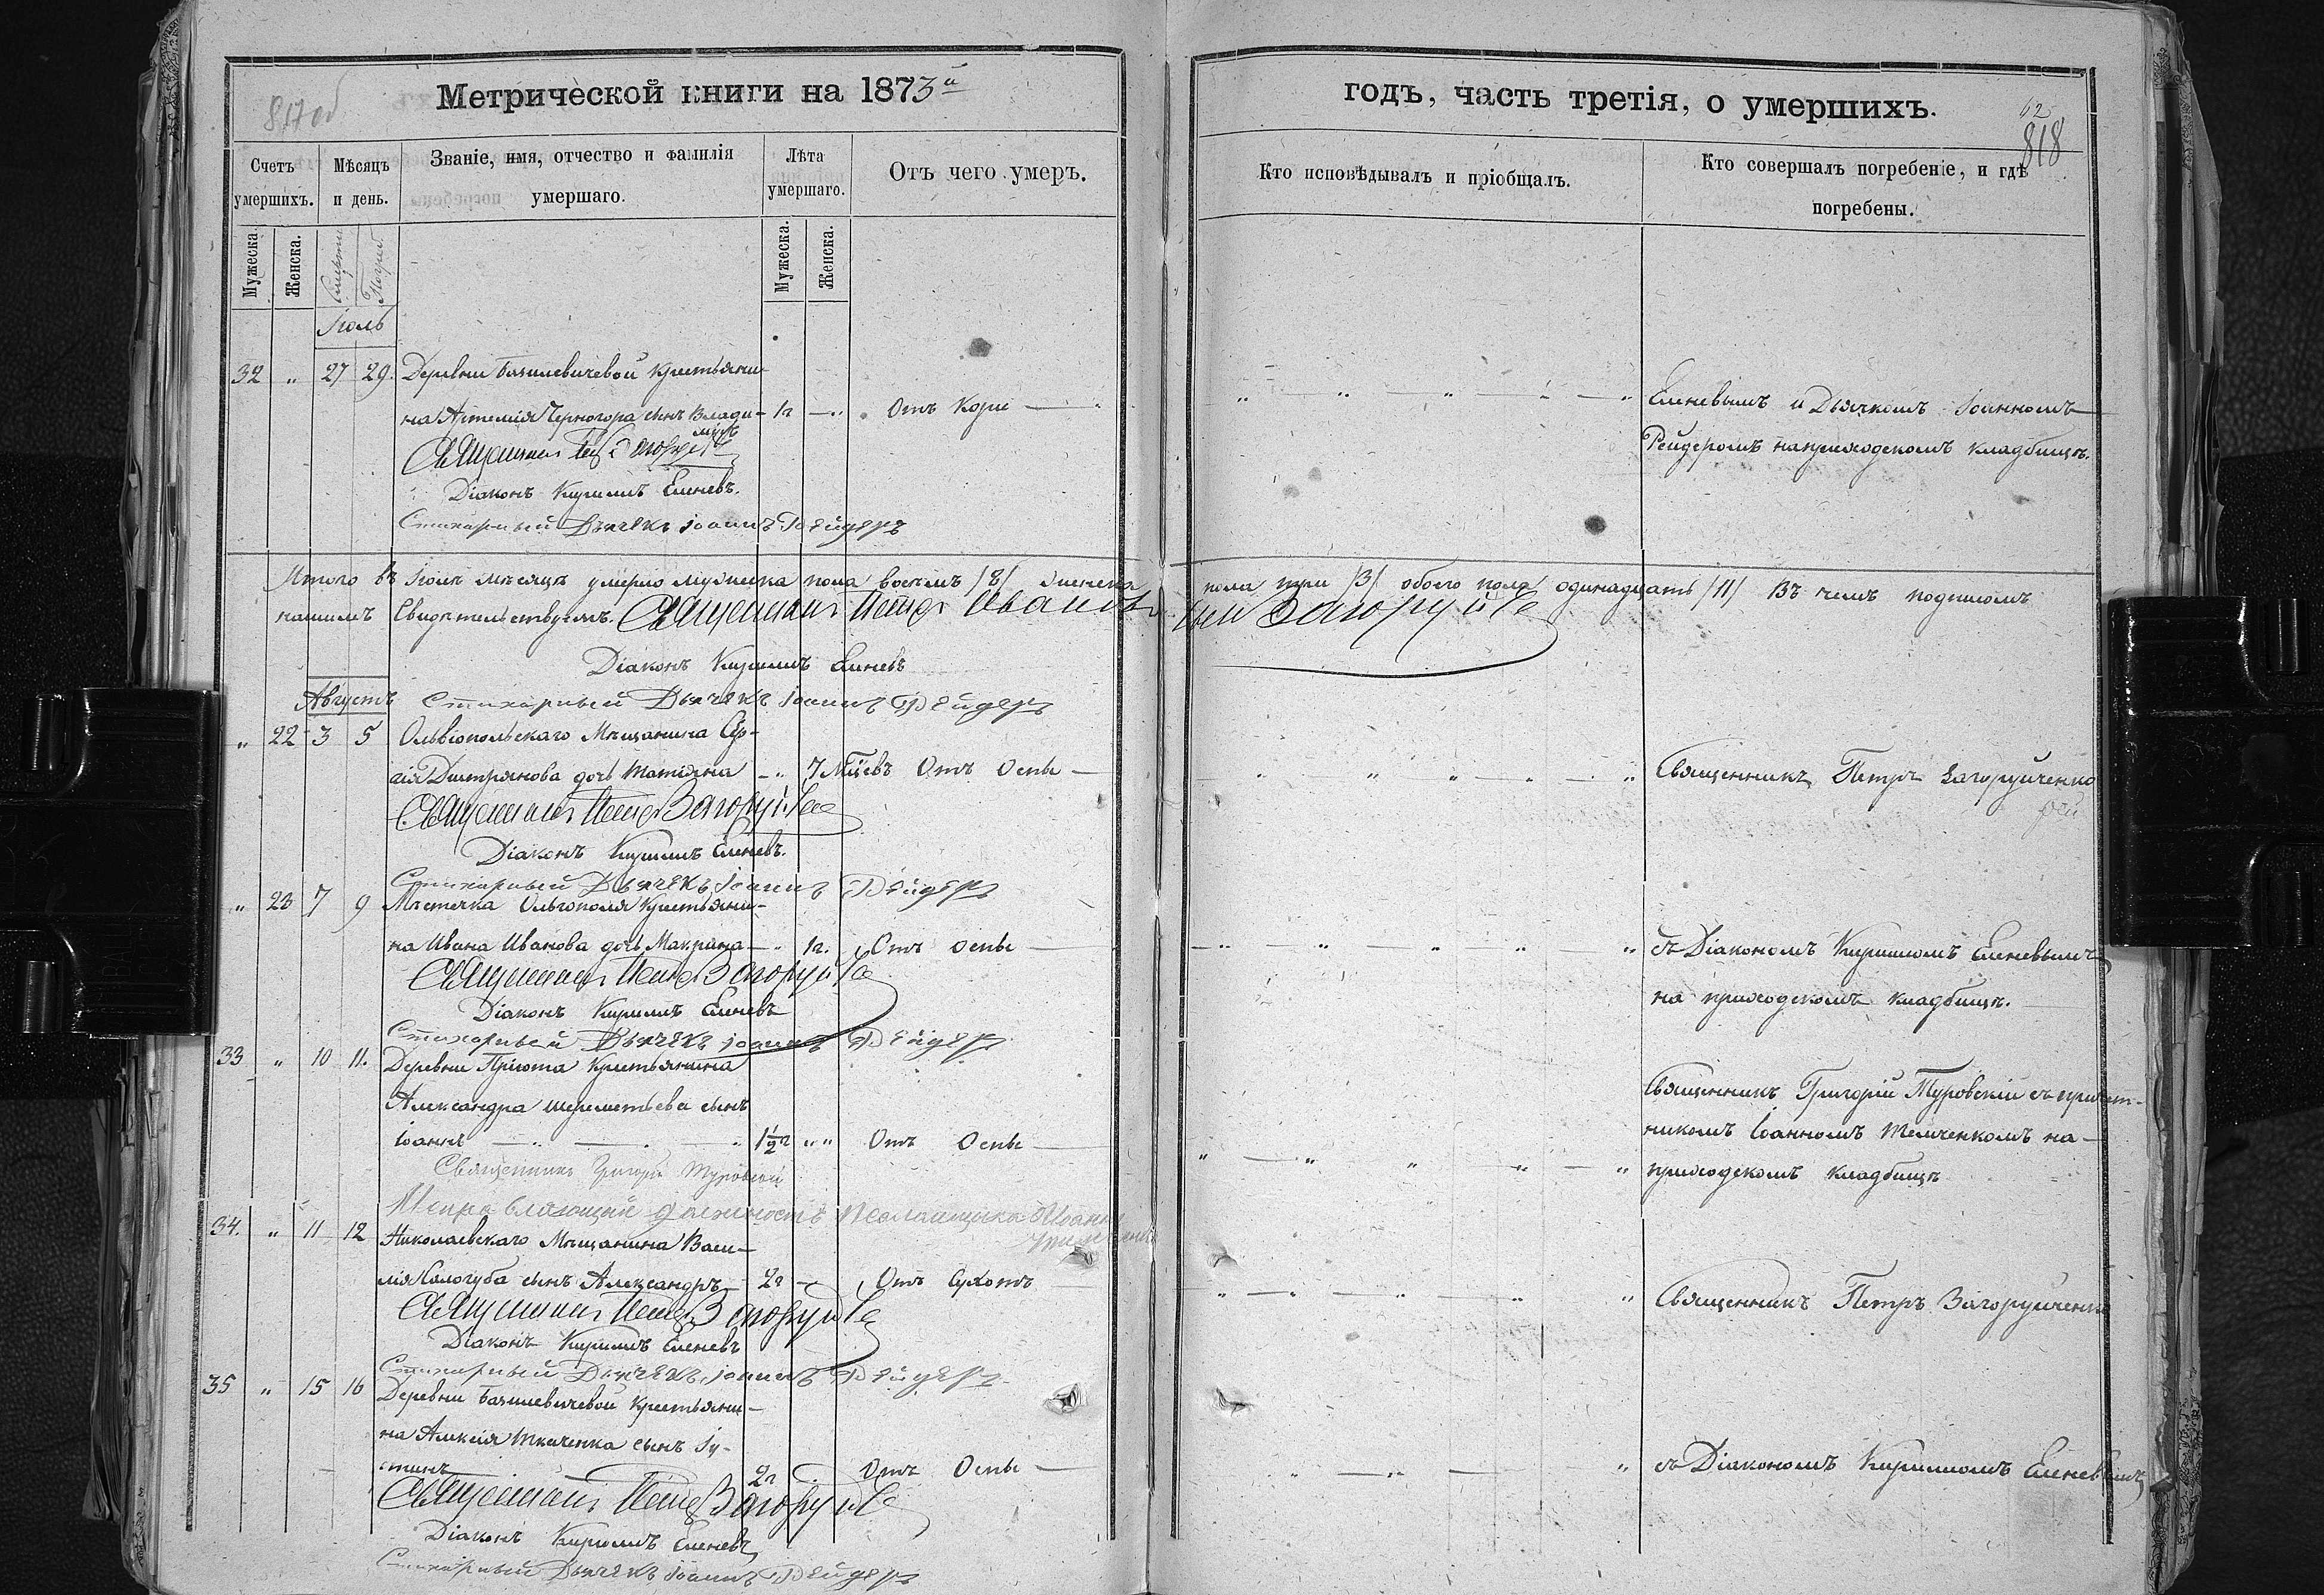 817 об
Метрической книги на 1873й
Счетъ умершихъ.
Мѣсяцъ и день.
Званіе, имя, отчество и фамилія умершаго.
Лѣта умершаго.
Отъ чего умеръ.
Мужеска.
Женска.
Смерти
Погреб
Мужеска.
Женска.
Іюль
32 " 27 29. Деревни Базилевичевой крестьяни-
на Артемія Черногора сынъ Влади- 1г — " Отъ Кори —
міръ
Священникъ Петръ Загоруйч
Діаконъ Кириллъ Еленевъ.
Стихарный Дьячекъ Іоаннъ Рейдеръ
Итого въ Іюлѣ мѣсяцѣ умерло мужеска пола восемь /8/ женска
нашимъ Свидѣтельствуемъ. Священникъ Петръ Иванов
Діаконъ Кириллъ Еленевъ
Августъ Стихарный Дьячекъ Іоаннъ Рейдеръ
" 22 3 5 Ольвіопольскаго Мѣщанина Сер-
гія Дмитріянова дочь Татіяна — " 7 Мѣцевъ Отъ Оспы —
Священникъ Петръ Загоруйче
Діаконъ Кириллъ Еленевъ.
Стихарный Дьячекъ Іоаннъ Рейдеръ
" 23 7 9 Мѣстечка Ольгополя Крестьяни-
на Ивана Иванова дочь Макрина — " 1г. Отъ оспы —
Священникъ Петръ Загоруйче
Діаконъ Кириллъ Еленевъ
Стихарный Дьячекъ Іоаннъ Рейдеръ
33 " 10 11. Деревни Пріюта Крестьянина
Александра Шереметьева сынъ
Іоаннъ — " — " — " 1½г " " Отъ Оспы —
Священникъ Григорій Туровскій
Исправляющій должность Псаломщика Іоаннъ
Темченко
34. " 11 12 Николаевскаго Мѣщанина Васи-
лія Кологуба сынъ Александръ — 2г — Отъ Сухотъ
Священникъ Петръ Загоруйче
Діаконъ Кириллъ Еленевъ
Стихарный Дьячекъ Іоаннъ Рейдеръ
35 " 15 16 Деревни Базилевичевой крестьяни-
на Алексія Ткаченка сынъ Іу-
стинъ — 2г — " Отъ Оспы —
Священникъ Петръ Загоруйче
Діаконъ Кириллъ Еленевъ
Стихарный Дьячекъ Іоаннъ Рейдеръ
годъ, часть третія, о умершихъ.
62
818
Кто исповѣдывалъ и пріобщалъ.
Кто совершалъ погребеніе, и гдѣ погребены.
" " " " — " Еленевымъ и Дьячкомъ Іоанномъ
Рейдеромъ на приходскомъ кладбищѣ.
пола три /3/ обоего пола одинадцать /11/ Въ чемъ подписомъ
сын Загоруйче
" " " — " — " Священникъ Петръ Загоруйченко
— " " " " " съ Діакономъ Кирилломъ Еленевымъ
на приходскомъ кладбищѣ.
Священникъ Григорій Туровскій съ причет-
никомъ Іоанномъ Темченкомъ на-
" — " " — " — " приходскомъ кладбищѣ
" — " — " " " Священникъ Петръ Загоруйченко
" — " — " съ Діакономъ Кирилломъ Еленевымъ